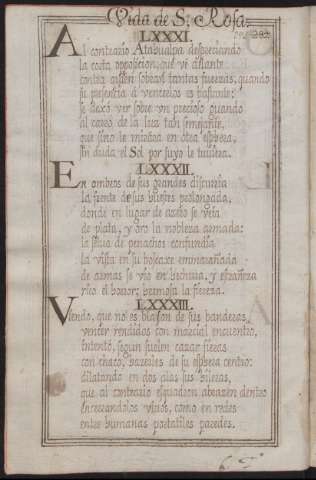 Vida de S. Rosa.
LXXXI.
Al contrario Atabualpa despreciando
la corta oposicion, que vè distante
contra quien sobran tantas fuerzas, quando
su presencia à vencerlos es bastante:
se dexò ver sobre vn precioso quando
al carro de la luz tan semejante,
que sino le mirára en otra esphera,
sin duda el Sol por suyo le tuviera.
LXXXII.
En ombros de sus grandes discurria
la frente de sus huestes prolongada,
donde en lugar de azero se veia
de plata, y oro la nobleza armada:
la selva de penachos confundia
la vista en su boscaxe enmarañada
de armas se vio en hechura, y estrañeza
rico el horror; hermosa la fiereza.
LXXXIII.
Viendo, que no es blason de sus banderas,
vencer rendidos con marcial encuentro,
intentò, segun suelen cazar fieras
con chaco, hazerles de su esphera centro:
dilatando en dos alas sus hileras,
que al contrario esquadron abrazen dentro
cercandolos vivos, como en redes
entre humanas portatiles paredes.